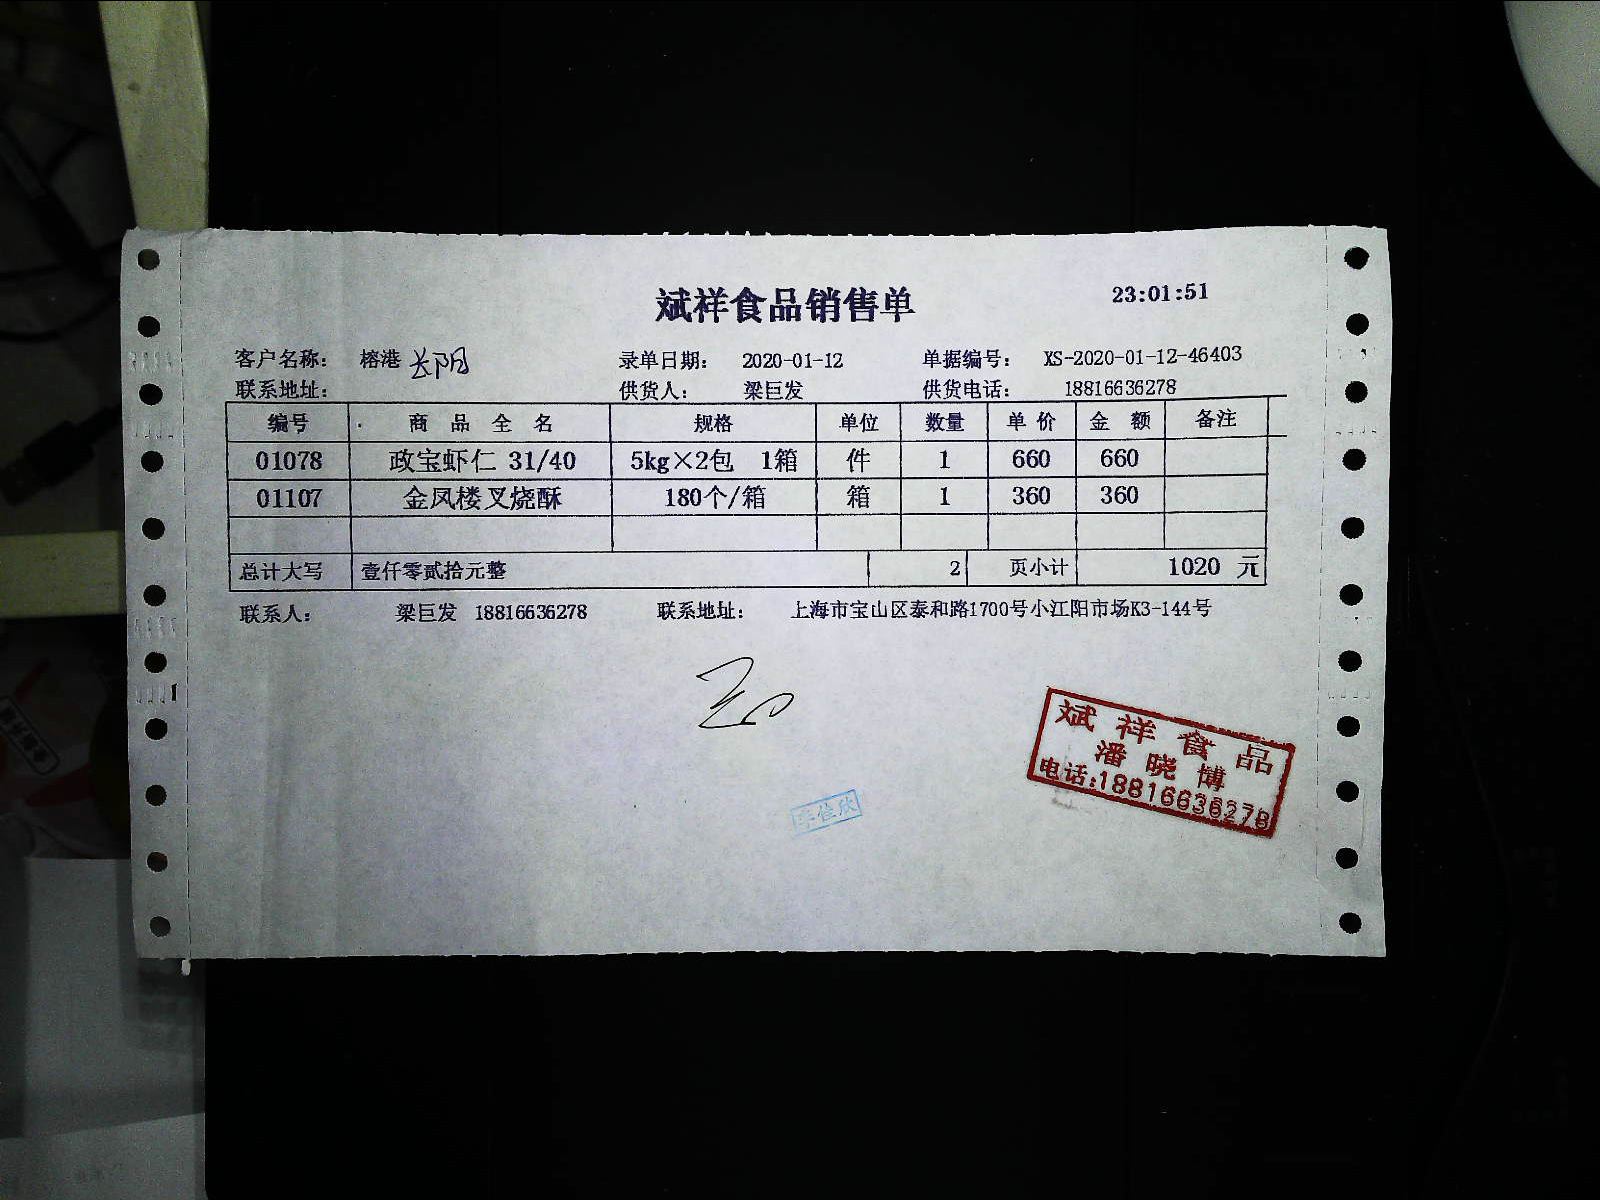 斌祥食品销售单 23:01:51
客户名称： 榕港 长阳 录单日期： 2020-01-12 单据编号： XS-2020-01-12-46403
联系地址： 供货人： 梁巨发 供货电话： 18816636278
编号 商品全名 规格 单位 数量 单价 金额 备注
01078 政宝虾仁 31/40 5kg×2包 1箱 件 1 660 660
01107 金凤楼叉烧酥 180个/箱 箱 1 360 360
总计大写 壹仟零贰拾元整 2 页小计 1020 元
联系人： 梁巨发 18816636278 联系地址： 上海市宝山区泰和路1700号小江阳市场K3-144号
斌祥食品
潘晓博
电话:18816636278
李佳欣